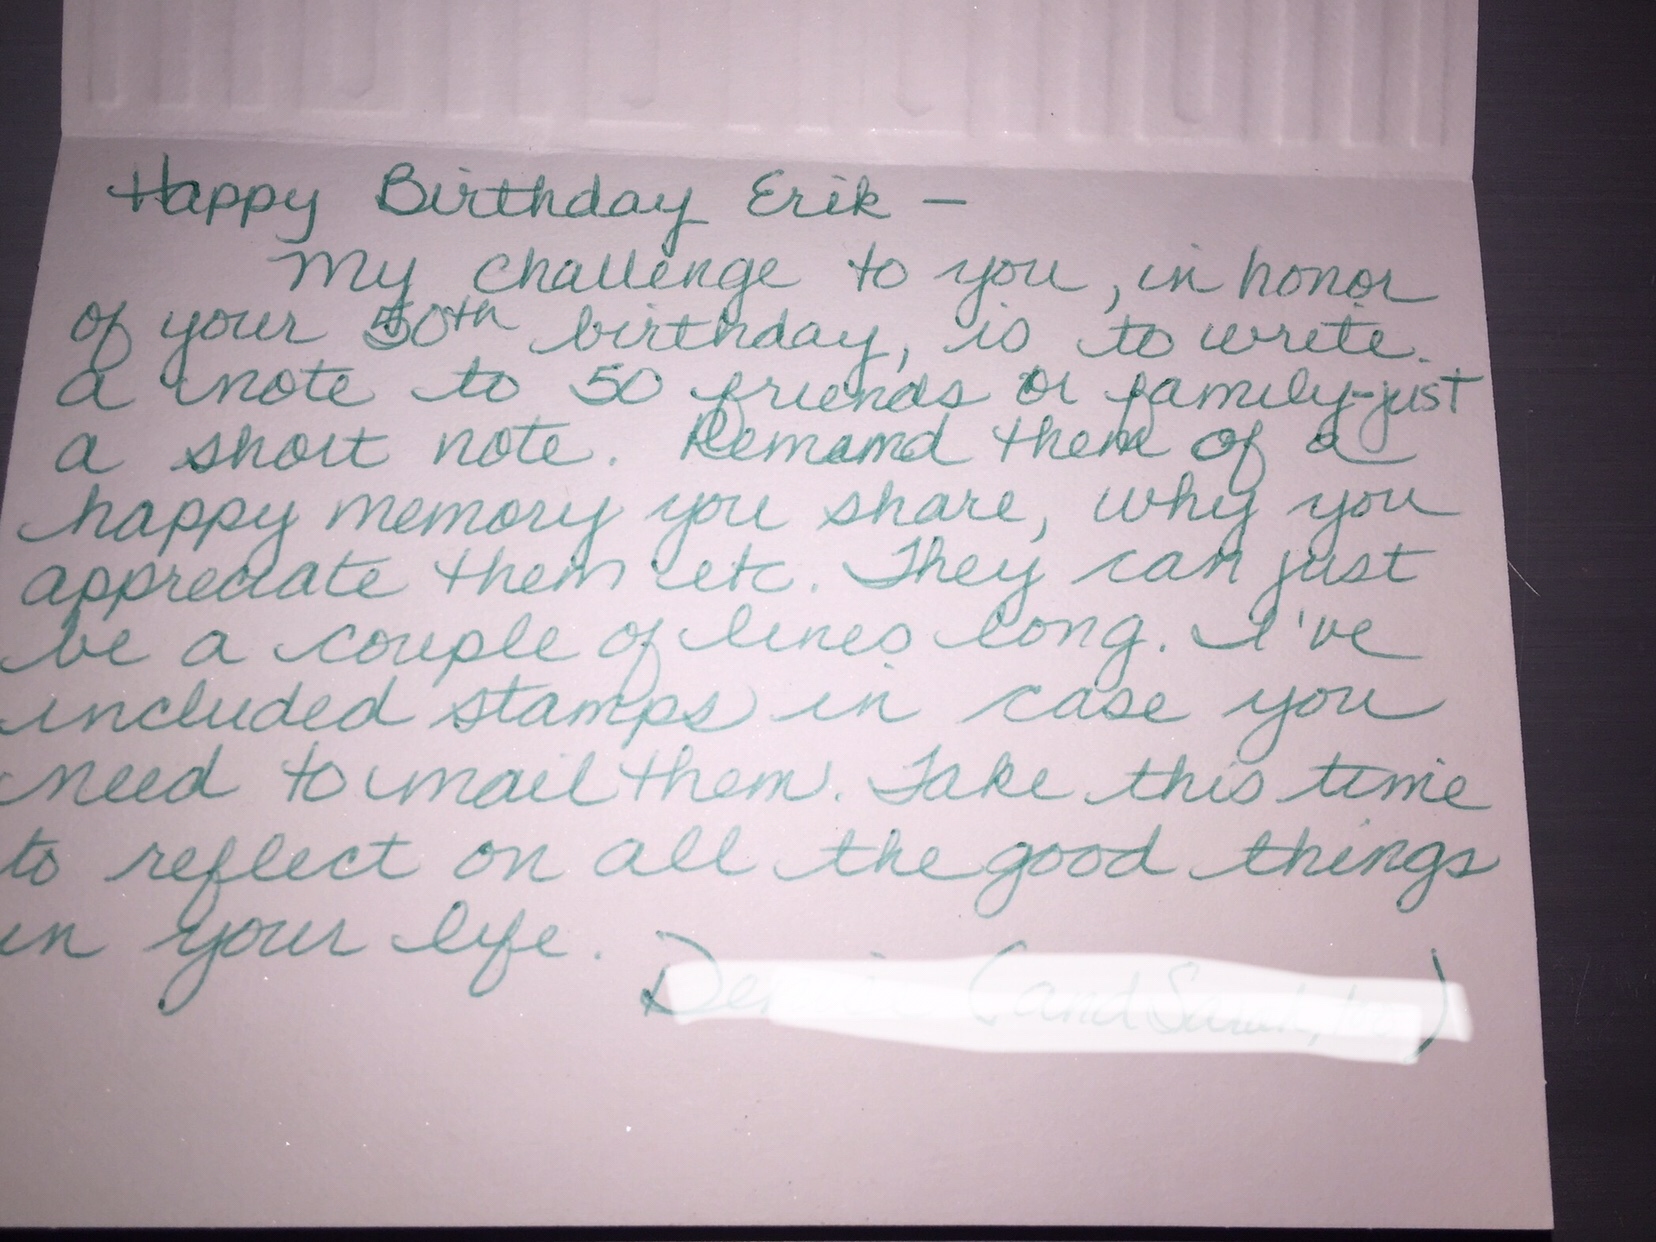 Happy Birthday Erik —
My challenge to you, in honor
of your 50th birthday, is to write
a note to 50 friends or family-just
a short note. Remamd them of a
happy memory you share, why you
appreciate them etc. They can just
be a couple of lines long. I've
included stamps in case you
need to mail them. Take this time
to reflect on all the good things
in your life.